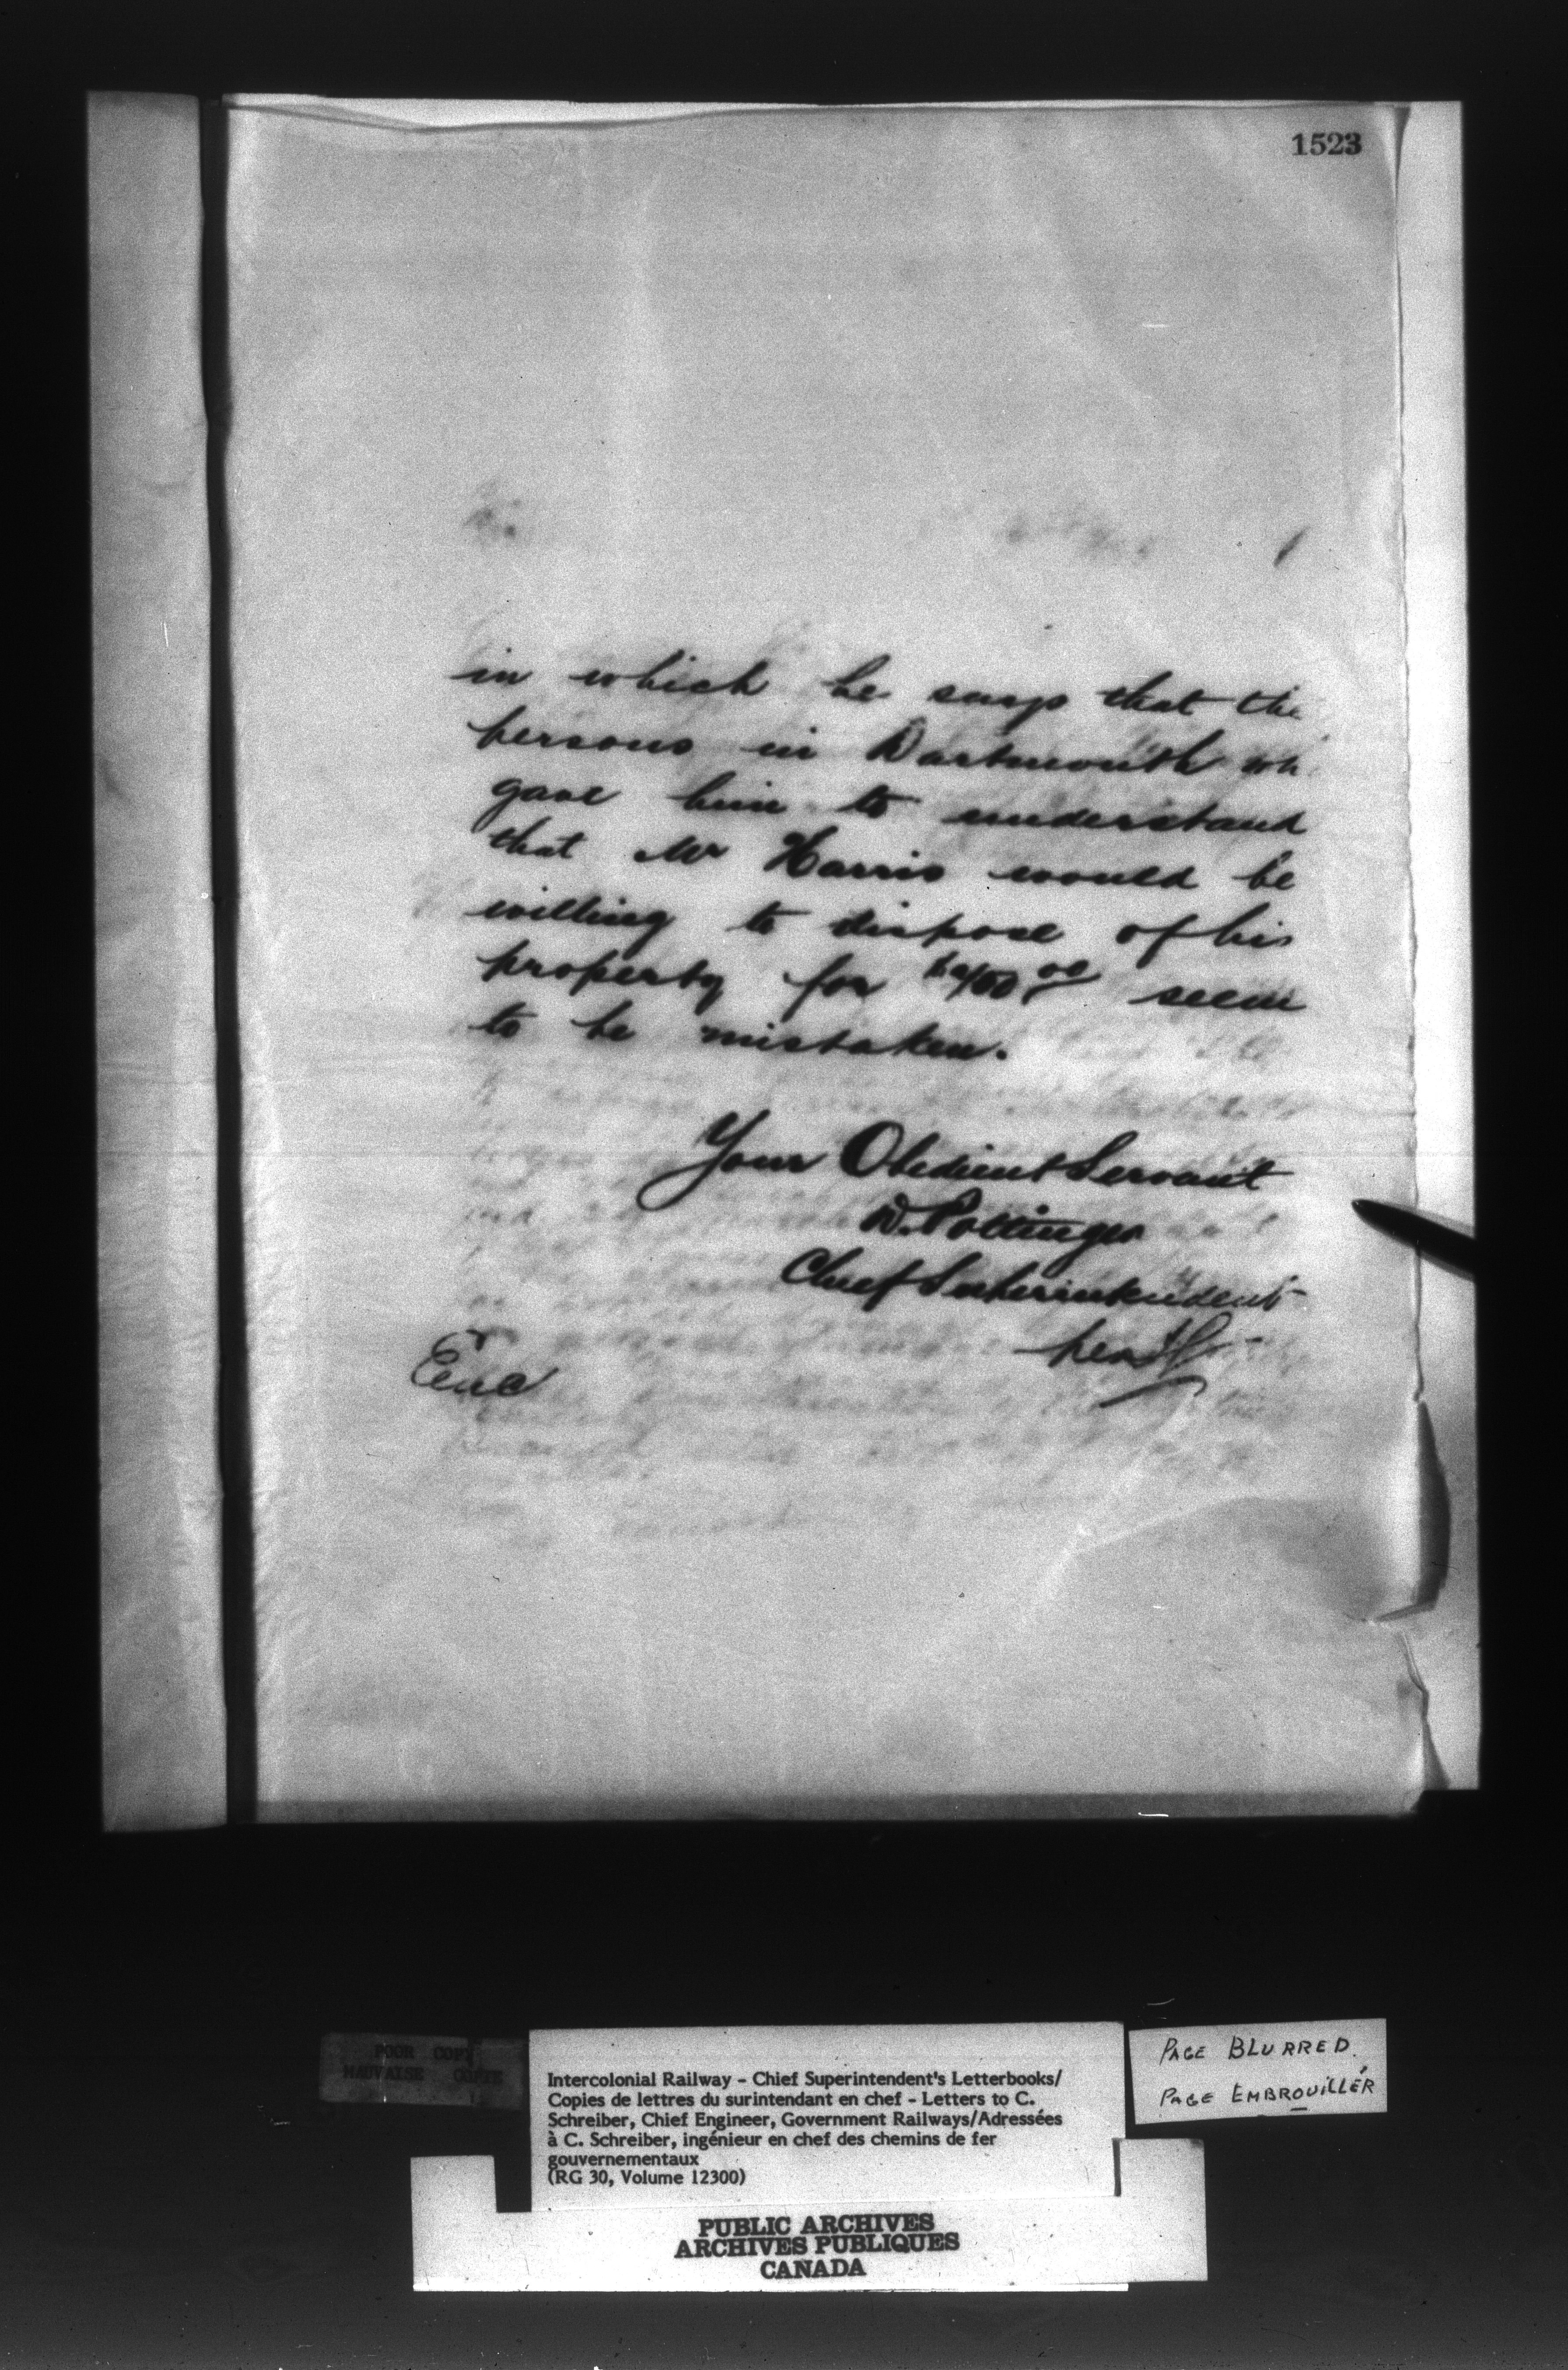 1523
in which he says that the
persons in Dartmouth wh
gave him to understand
that Mr Harris would be
willing to dispose of his
property for seem
to be mistaken.
Your Obedient Servant
D. Pottinger
Chief Superintendent
per
Enc
POOR COPY
MAUVAISE COPIE
Intercolonial Railway - Chief Superintendent's Letterbooks/
Copies de lettres du surintendant en chef - Letters to C.
Schreiber, Chief Engineer, Government Railways/Adressées
à C. Schreiber, ingénieur en chef des chemins de fer
gouvernementaux
(RG 30, Volume 12300)
PAGE BLURRED.
PAGE EMBROUILLÉR
PUBLIC ARCHIVES
ARCHIVES PUBLIQUES
CANADA